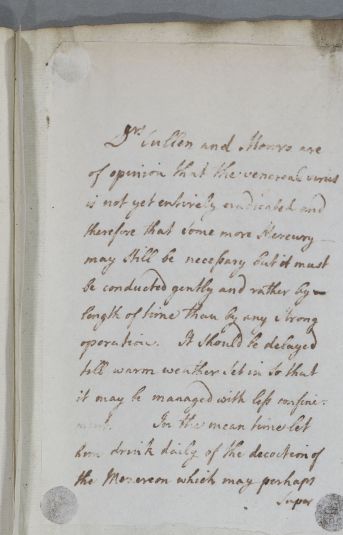 Drs. Cullen and Monro are
of opinion that the venereal virus
is not yet entirely eradicated and
therefore that some more Mercury —
may still be necessary but it must
be conducted gently and rather by —
length of time than by any strong
operation. It should be delayed
till warm weather set in so that
it may be managed with less confine-
ment. In the mean time let
him drink daily of the decoction of
the Mezereon which may perhaps
super